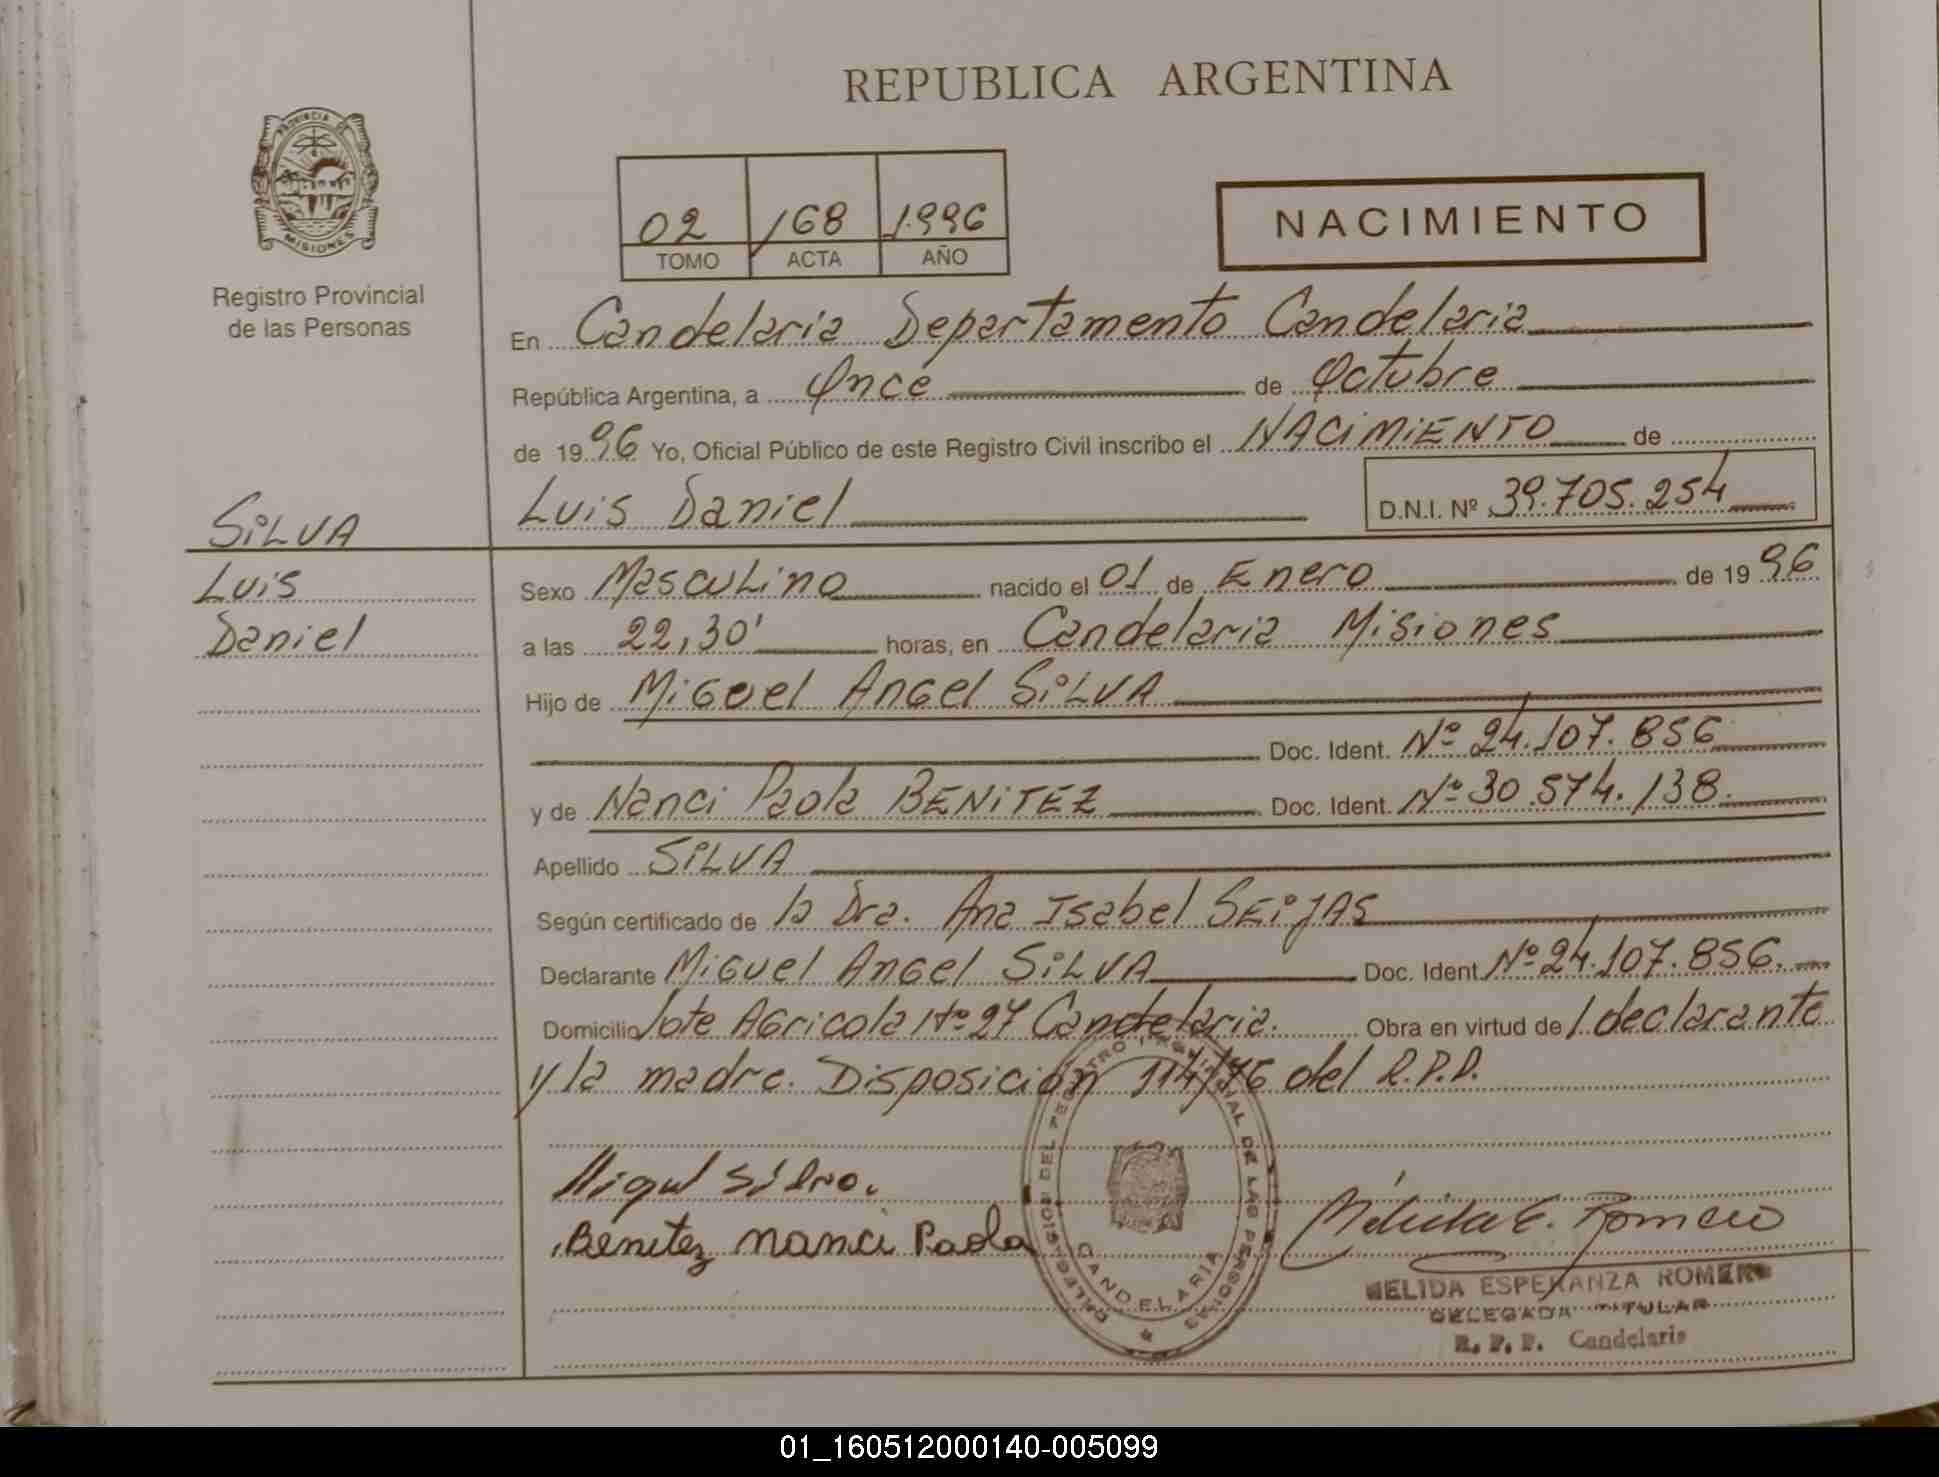 REPUBLICA ARGENTINA
PROVINCIA DE
MISIONES
Registro Provincial
de las Personas
02 168 1996
TOMO ACTA AÑO
NACIMIENTO
En Candelaria Departamento Candelaria
República Argentina, a Once de Octubre
de 1996 Yo, Oficial Público de este Registro Civil inscribo el NACIMIENTO de
SILVA
Luis Daniel D.N.I. Nº 39.705.254
Luis
Daniel
Sexo Masculino nacido el 01 de Enero de 1996
a las 22,30' horas, en Candelaria Misiones
Hijo de Miguel Angel SILVA
Doc. Ident. Nº 24.107.856
y de Nanci Paola BENITEZ Doc. Ident. Nº 30.574.138.
Apellido SILVA
Según certificado de la Dra. Ana Isabel SEIJAS
Declarante Miguel Angel SILVA Doc. Ident. Nº 24.107.856.
Domicilio lote Agricola Nº 27 Candelaria. Obra en virtud de l declarante
y la madre. Disposición 114/76 del R.P.P.
Miguel Silva.
Benitez Nanci Paola
DELEGACION DEL REGISTRO PROVINCIAL DE LAS PERSONAS
CANDELARIA
Mélida E. Romero
MELIDA ESPERANZA ROMERO
DELEGADA TITULAR
R. P. P. Candelaria
01_160512000140-005099